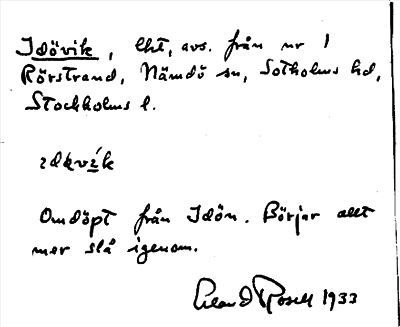 Idövik, lht, avs. från nr 1
Rörstrand, Nämdö sn, Sotholms hd,
Stockholms l.
Omdöpt från Idön. Börjar allt
mer slå igenom.
Erland Rosell 1933